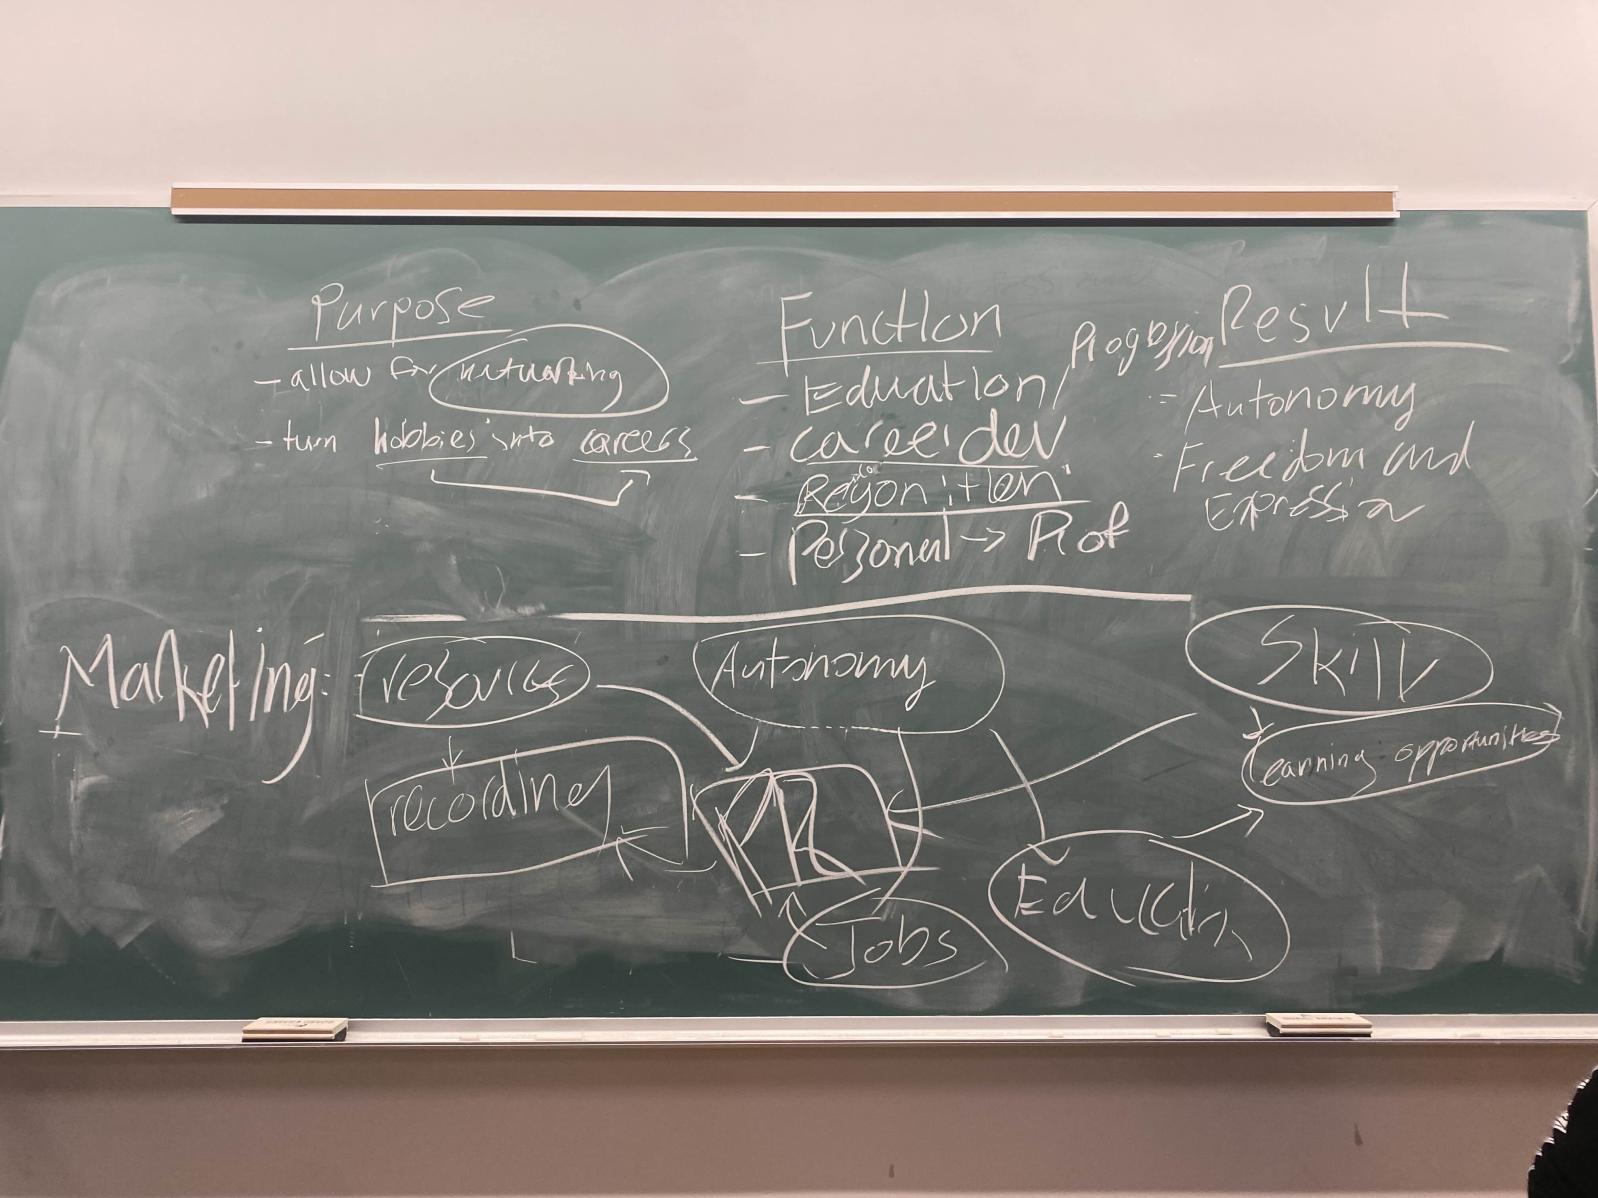 Purpose
- allow for networking
- turn hobbies into careers
Function
- Education/Progression
- career dev
- Recognition
- Personal → Prof
Result
- Autonomy
- Freedom and
Expression
Marketing:
resources
Autonomy
Skill
recording
earning opportunities
Jobs